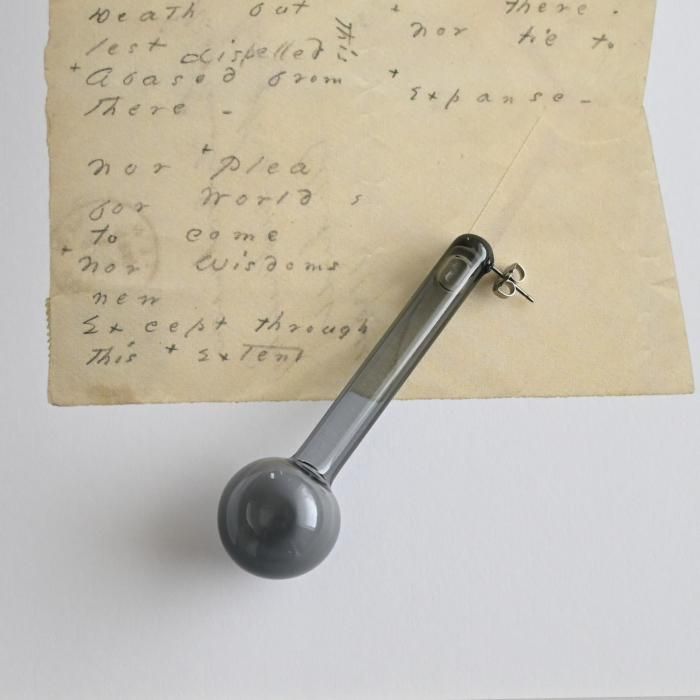 Death but
lest dispelled this
+ Abased from
there -
nor + plea
for world s
to come
+ nor wisdoms
new
Except through
this + Extent
+ there .
nor tie to
+ Expanse -